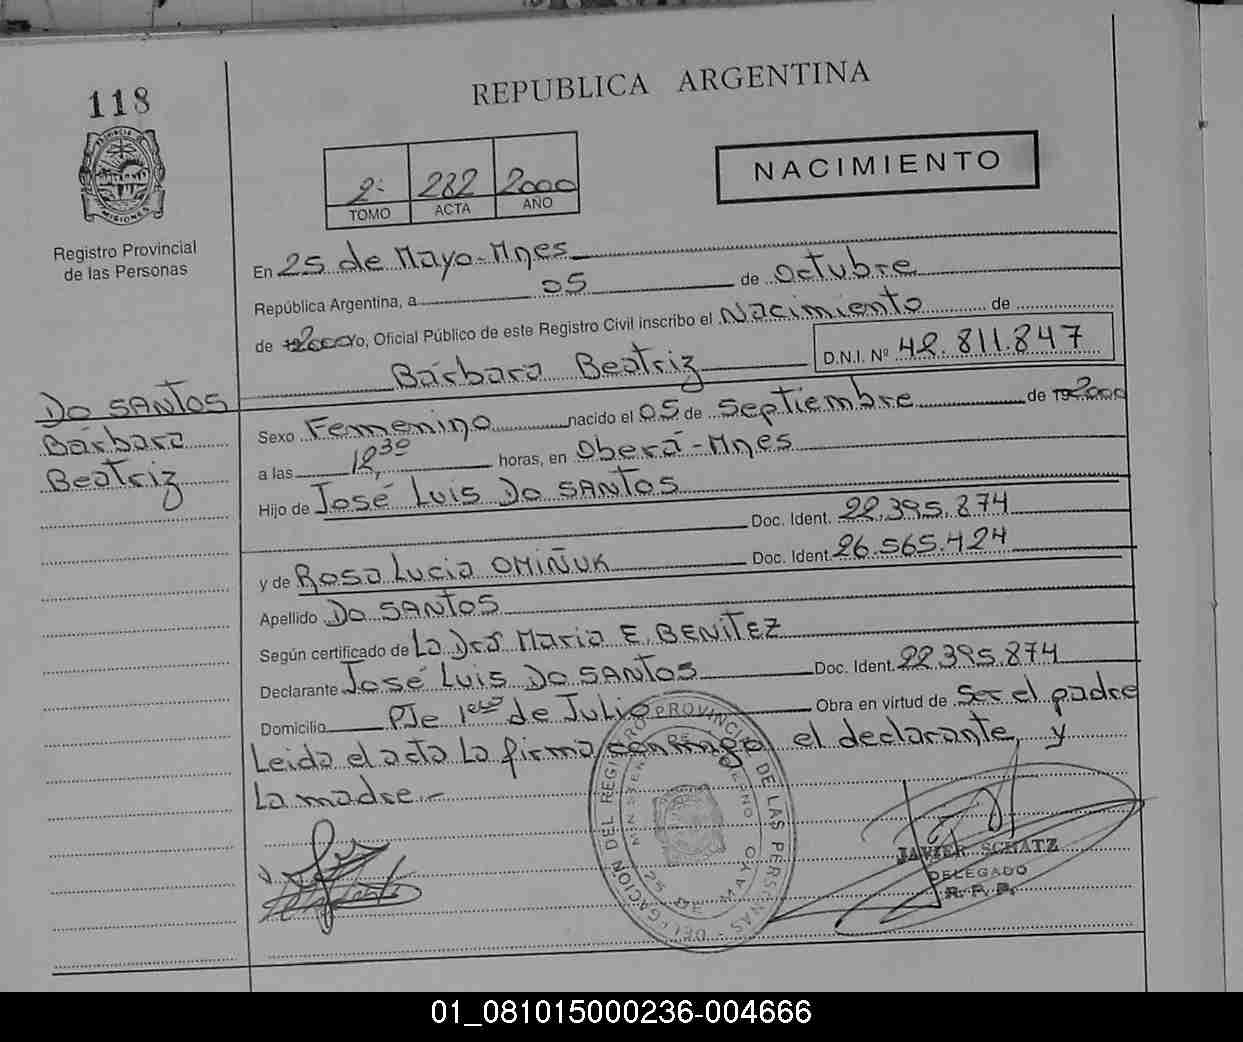 118
REPUBLICA ARGENTINA
PROVINCIA DE MISIONES
Registro Provincial
de las Personas
2º 282 2000
TOMO ACTA AÑO
NACIMIENTO
En 25 de Mayo-Mnes
República Argentina, a 05 de Octubre
de 2000 Yo, Oficial Público de este Registro Civil inscribo el Nacimiento de
Bárbara Beatriz D.N.I. Nº 42.811.847
DO SANTOS
Bárbara
Beatriz
Sexo Femenino nacido el 05 de Septiembre de 2000
a las 12,30 horas, en Oberá-Mnes
Hijo de José Luis DO SANTOS
Doc. Ident. 22.395.874
y de Rosa Lucia OMIÑUK Doc. Ident. 26.565.424
Apellido DO SANTOS
Según certificado de La Dra Maria E. BENITEZ
Declarante José Luis DO SANTOS Doc. Ident. 22.395.874
Domicilio Pje 1ero de Julio Obra en virtud de Ser el padre
Leida el acta La firma conmigo el declarante, y
La madre.-
DELEGACION DEL REGISTRO PROVINCIAL DE LAS PERSONAS
25 DE MAYO
JAVIER SCHATZ
DELEGADO
R. P. P.
01_081015000236-004666